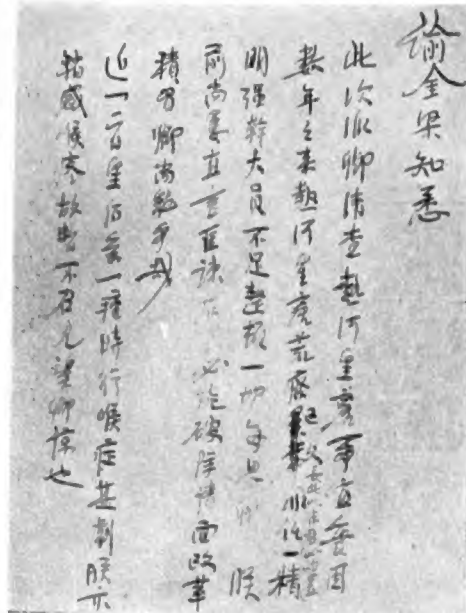 諭金梁知悉
此次派卿清查熱河皇產事宜實因
數年之來熱河皇產荒廢已極派一精
明強幹大員不足整頓一切每見 朕
前尚蒙直言匡諫 必能破除情面改革
積習卿尚勉乎哉
近一二日皇后患一種時行喉症甚劇朕亦
拈感喉疼故暫不召見望卿諒也